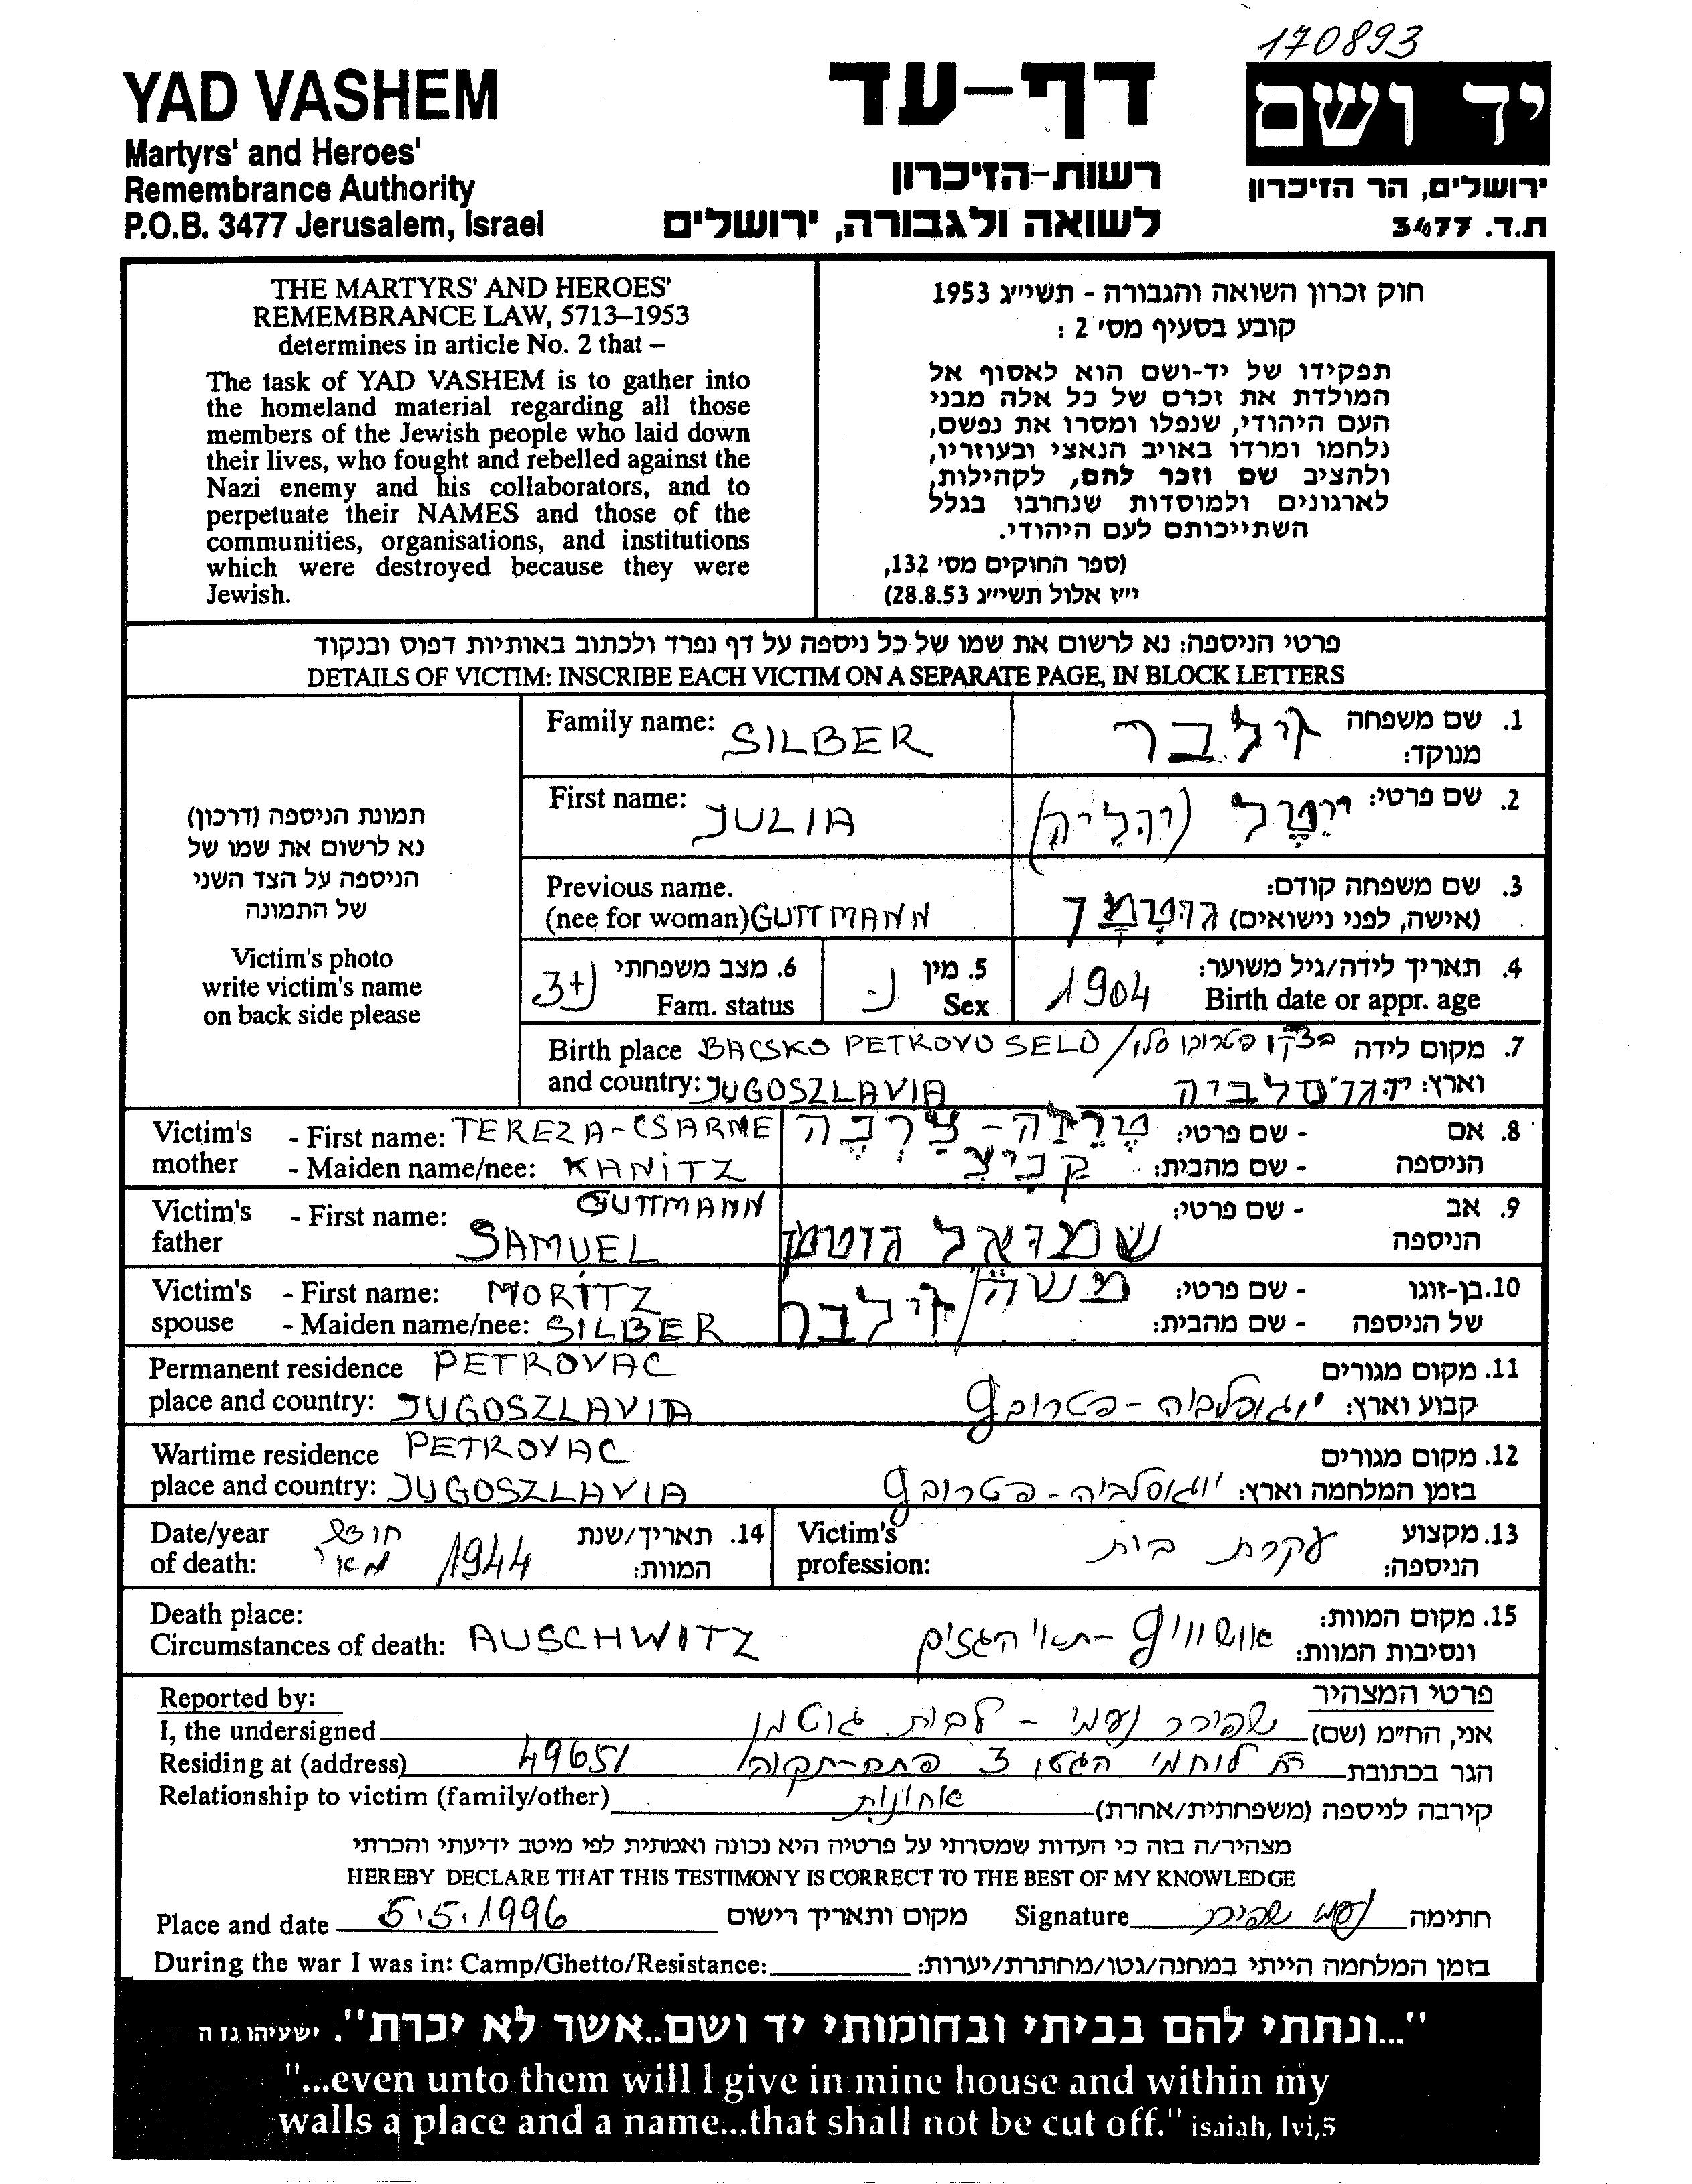 170893
YAD VASHEM
Martyrs' and Heroes'
Remembrance Authority
P.O.B. 3477 Jerusalem, Israel
דף-עד
רשות-הזיכרון
לשואה ולגבורה, ירושלים
יד ושם
ירושלים, הר הזיכרון
ת.ד. 3477
THE MARTYRS' AND HEROES'
REMEMBRANCE LAW, 5713–1953
determines in article No. 2 that –
The task of YAD VASHEM is to gather into
the homeland material regarding all those
members of the Jewish people who laid down
their lives, who fought and rebelled against the
Nazi enemy and his collaborators, and to
perpetuate their NAMES and those of the
communities, organisations, and institutions
which were destroyed because they were
Jewish.
חוק זכרון השואה והגבורה - תשי״ג 1953
קובע בסעיף מס׳ 2 :
תפקידו של יד-ושם הוא לאסוף אל
המולדת את זכרם של כל אלה מבני
העם היהודי, שנפלו ומסרו את נפשם,
נלחמו ומרדו באויב הנאצי ובעוזריו,
ולהציב שם וזכר להם, לקהילות,
לארגונים ולמוסדות שנחרבו בגלל
השתייכותם לעם היהודי.
(ספר החוקים מס׳ 132,
י״ז אלול תשי״ג 28.8.53)
פרטי הניספה: נא לרשום את שמו של כל ניספה על דף נפרד ולכתוב באותיות דפוס ובנקוד
DETAILS OF VICTIM: INSCRIBE EACH VICTIM ON A SEPARATE PAGE, IN BLOCK LETTERS
תמונת הניספה (דרכון)
נא לרשום את שמו של
הניספה על הצד השני
של התמונה
Victim's photo
write victim's name
on back side please
Family name: SILBER
1. שם משפחה זילבר
מנוקד:
First name: JULIA
2. שם פרטי: (יהליק)
Previous name.
(nee for woman) GUTTMANN
3. שם משפחה קודם:
(אישה, לפני נישואים) גוטמן
4. תאריך לידה/גיל משוער:
Birth date or appr. age 1904
5. מין
Sex נ.
6. מצב משפחתי
Fam. status נ+3
Birth place BACSKO PETROVO SELO/
and country: JUGOSZLAVIA
7. מקום לידה בצקו פטרובו סלו
וארץ: יוגוסלביה
Victim's mother - First name: TEREZA-CSARNE
- Maiden name/nee: KANITZ
8. אם הניספה - שם פרטי: טרזה - צרנה
- שם מהבית: קניצ
Victim's father - First name: SAMUEL GUTTMANN
9. אב הניספה - שם פרטי: שמואל גוטמן
Victim's spouse - First name: MORITZ
- Maiden name/nee: SILBER
10. בן-זוגו של הניספה - שם פרטי: משה/זילבר
- שם מהבית:
Permanent residence PETROVAC
place and country: JUGOSZLAVIA
11. מקום מגורים
קבוע וארץ: יוגוסלביה - פטרובץ
Wartime residence PETROVAC
place and country: JUGOSZLAVIA
12. מקום מגורים
בזמן המלחמה וארץ: יוגוסלביה - פטרובץ
Date/year
of death: חודש מאי 1944
14. תאריך/שנת
המוות:
Victim's
profession:
13. מקצוע
הניספה: עקרת בית
Death place:
Circumstances of death: AUSCHWITZ
15. מקום המוות:
ונסיבות המוות: אושוויץ - תאי הגזים
Reported by:
פרטי המצהיר
I, the undersigned
אני, החי״מ (שם) שפירר נעמי - לבית גוטמן
Residing at (address) 49651
הגר בכתובת רח לוחמי הגטו 3 פתח-תקוה
Relationship to victim (family/other)
קירבה לניספה (משפחתית/אחרת) אחיינית
מצהיר/ה בזה כי העדות שמסרתי על פרטיה היא נכונה ואמתית לפי מיטב ידיעתי והכרתי
HEREBY DECLARE THAT THIS TESTIMONY IS CORRECT TO THE BEST OF MY KNOWLEDGE
Place and date 5.5.1996 מקום ותאריך רישום
Signature נעמי חתימה
During the war I was in: Camp/Ghetto/Resistance: בזמן המלחמה הייתי במחנה/גטו/מחתרת/יערות:
"...ונתתי להם בביתי ובחומותי יד ושם..אשר לא יכרת". ישעיהו נז ה
"...even unto them will I give in mine house and within my
walls a place and a name...that shall not be cut off." isaiah, lvi,5